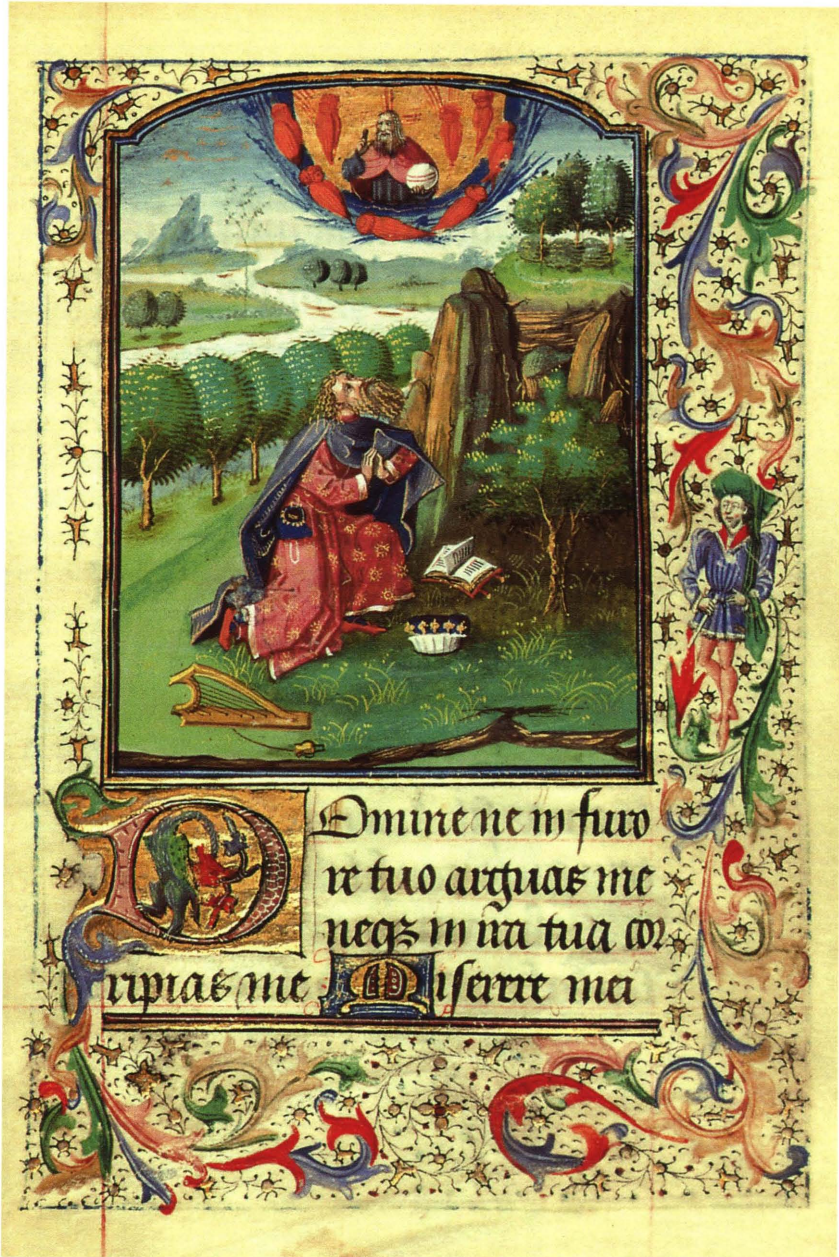 Domine ne in furo
re tuo arguas me
neqꝫ in ira tua cor
ripias me Miserere mei